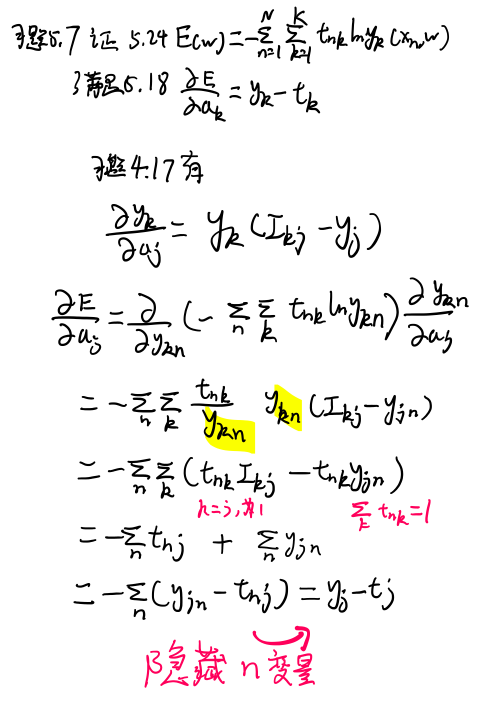 习题5.7 证 5.24 E(w)=-∑_{n=1}^{N}∑_{k=1}^{K} t_{nk} ln y_k(x_n,w)
满足5.18 ∂E/∂a_k = y_k - t_k
习题4.17有
∂y_k/∂a_j = y_k (I_{kj} - y_j)
∂E/∂a_j = ∂/∂y_{kn} (-∑_n ∑_k t_{nk} ln y_{kn}) ∂y_{kn}/∂a_j
= -∑_n ∑_k t_{nk}/y_{kn} y_{kn} (I_{kj} - y_{jn})
= -∑_n ∑_k (t_{nk} I_{kj} - t_{nk} y_{jn})
k=j,为1 ∑_k t_{nk}=1
= -∑_n t_{nj} + ∑_n y_{jn}
= -∑_n (y_{jn} - t_{nj}) = y_j - t_j
隐藏 n 变量